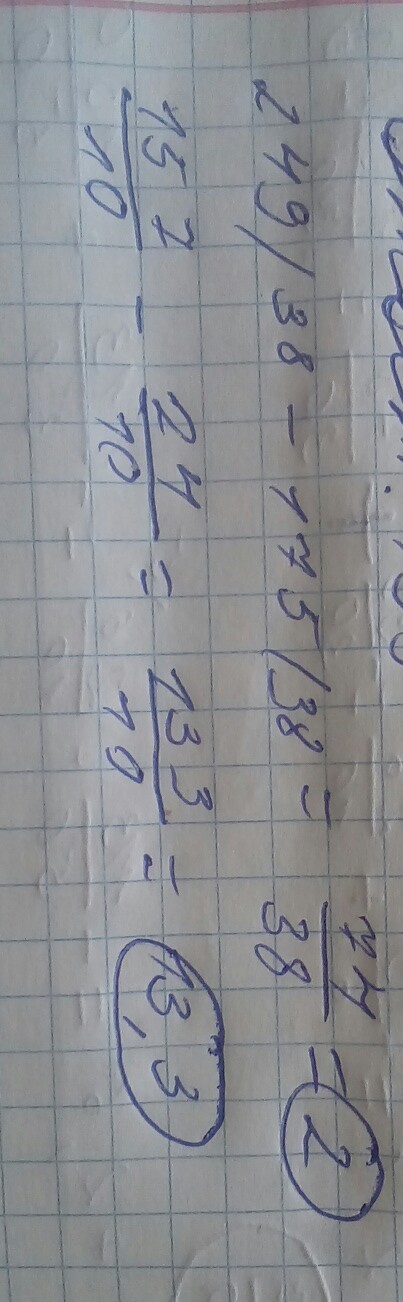 249/38 - 175/38 = 74/38 = 2
157/10 - 24/10 = 133/10 = 13,3